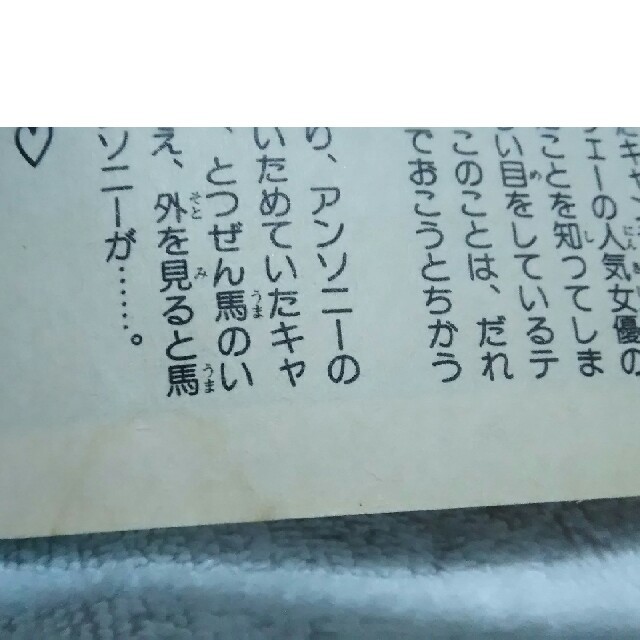 キャン
ェーの人気女優の
ことを知ってしま
い目をしているテ
このことは、だれ
ておこうとちがう
り、アンソニーの
いためていたキャ
、とつぜん馬のい
え、外を見ると馬
ソニーが……。
♡